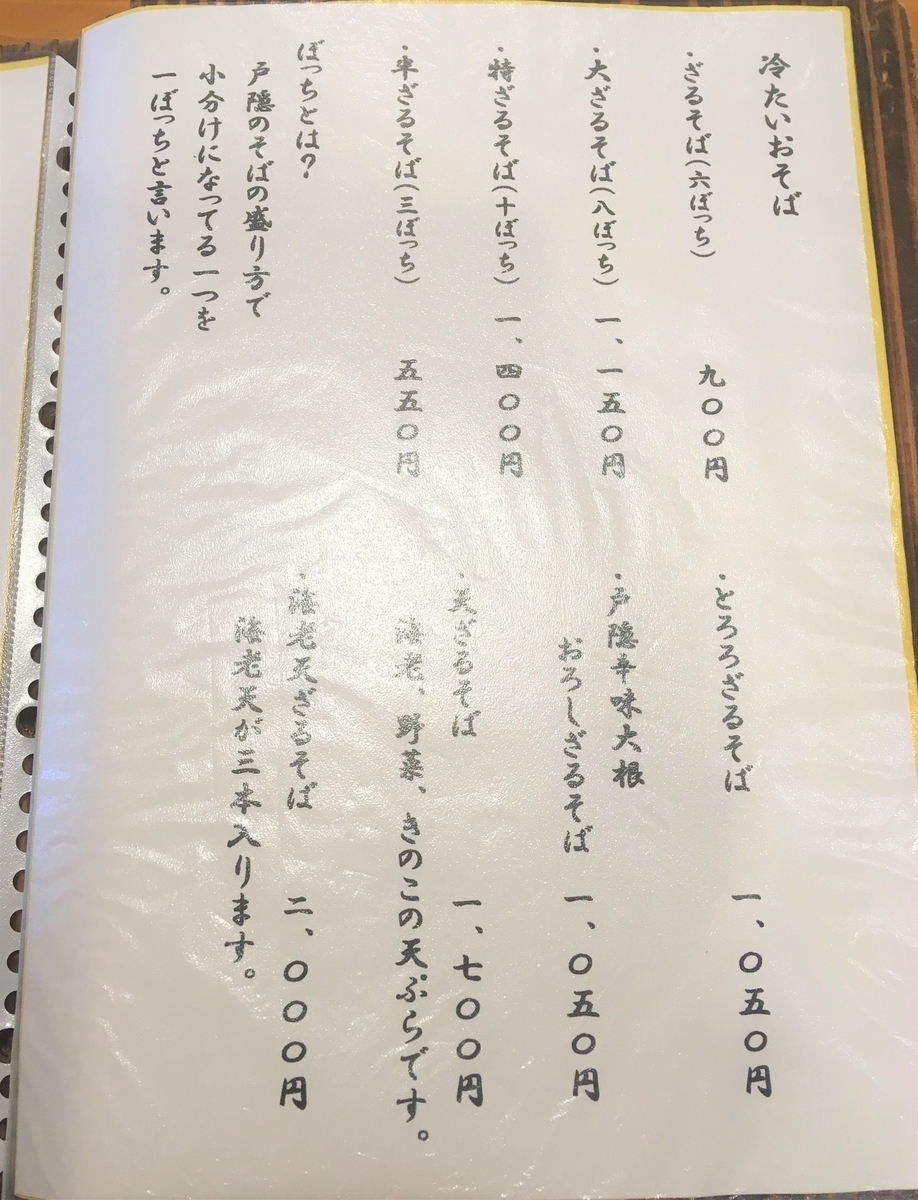 冷たいおそば
・ざるそば(六ぼっち) 九〇〇円
・大ざるそば(八ぼっち) 一、一五〇円
・特ざるそば(十ぼっち) 一、四〇〇円
・半ざるそば(三ぼっち) 五五〇円
ぼっちとは?
戸隠のそばの盛り方で
小分けになってる一つを
一ぼっちと言います。
・とろろざるそば 一、〇五〇円
・戸隠辛味大根
おろしざるそば 一、〇五〇円
・天ざるそば 一、七〇〇円
海老、野菜、きのこの天ぷらです。
・海老天ざるそば 二、〇〇〇円
海老天が三本入ります。